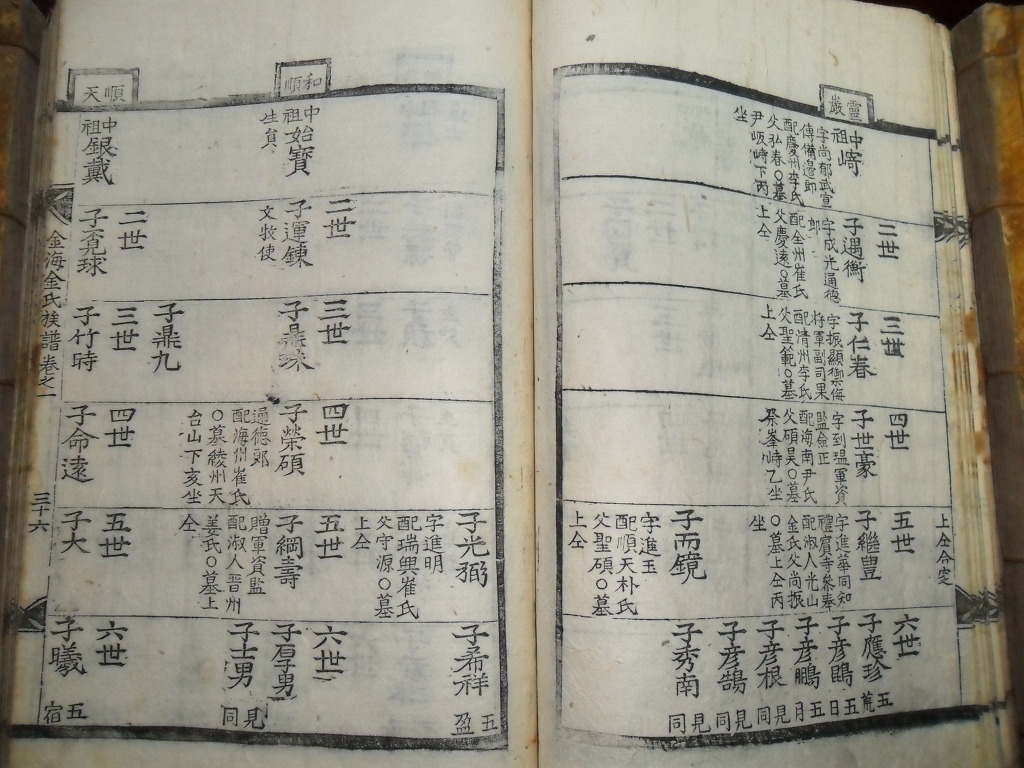 靈巖
上仝合窆
中祖崎
字尚郁武宣
傳備邉郎
配慶州李氏
父弘春○墓
尹峴峙下丙
坐
二世
子遇衡
字成光通德
郎
配全州崔氏
父慶遠○墓
上仝
三世
子仁春
字振顯禦侮
將軍副司果
配清州李氏
父聖範○墓
上仝
四世
子世豪
字到瑥軍資
監僉正
配海南尹氏
父碩昊○墓
祭峯峙乙坐
五世
子繼豊
字進華同知
禮賓寺參奉
配淑人光山
金氏父尚振
○墓上仝丙
坐
子而鏡
字進玉
配順天朴氏
父聖碩○墓
上仝
六世
子應珍
五荒
子彦鵾
五日
子彦鵬
五月
子彦根
見同
子彦鵠
見同
子秀南
見同
子光弼
字進明
配瑞興崔氏
父守源○墓
上仝
子希祥
五盈
和順
中始
祖寶
生員
二世
子運鍊
文牧使
三世
子鼎珠
子鼎九
四世
子榮碩
通德郎
配海州崔氏
○墓綾州天
台山下亥坐
五世
子綱壽
贈軍資監
配淑人晋州
姜氏○墓上
仝
六世
子厚男
子士男
見同
順天
中祖銀戴
二世
子賓球
三世
子竹時
四世
子命遠
五世
子大
六世
子曦
五宿
金海金氏族譜卷之一
三十六